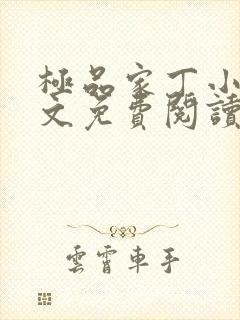 極品家丁小
文免費閱讀
雲霄車手